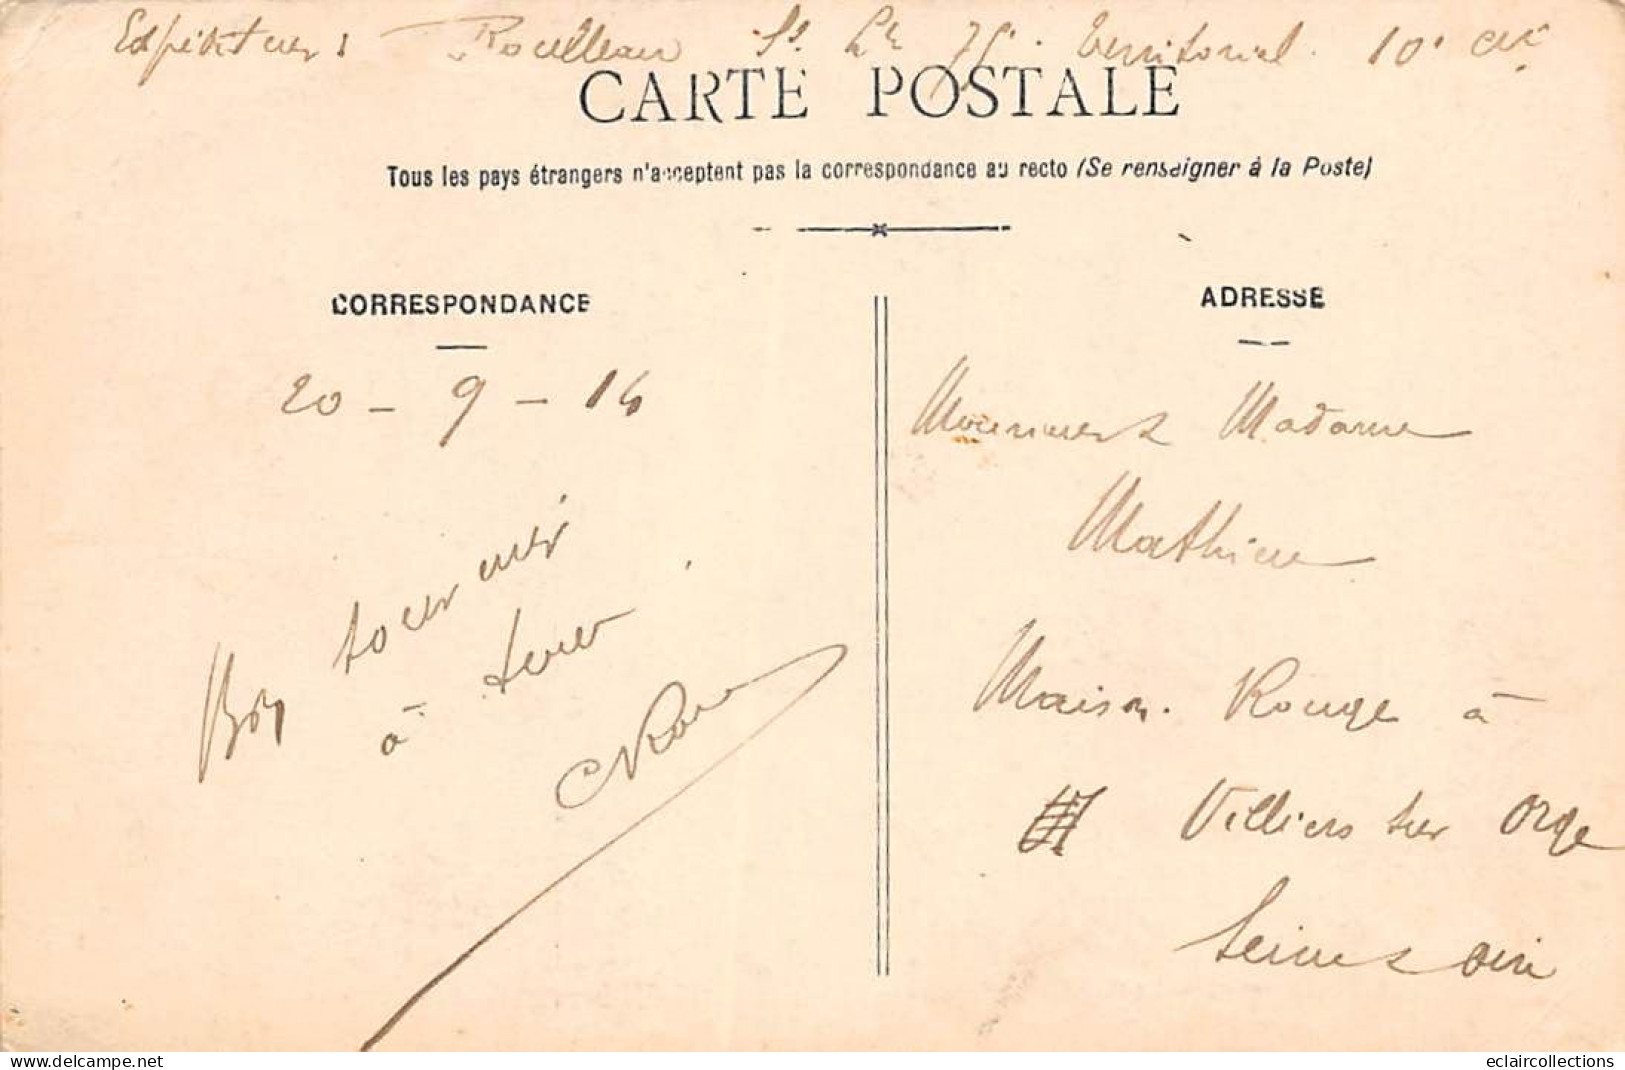 Expéditeur : Roulleau Ss Lt 75e Territorial. 10e Cie
CARTE POSTALE
Tous les pays étrangers n'acceptent pas la correspondance au recto (Se renseigner à la Poste)
CORRESPONDANCE
20 - 9 - 14
Bon souvenir
à tous.
ADRESSE
Monsieur & Madame
Mathieu
Maison Rouge à
Villiers sur Orge
Seine & Oise
delcampe.net
eclaircollections